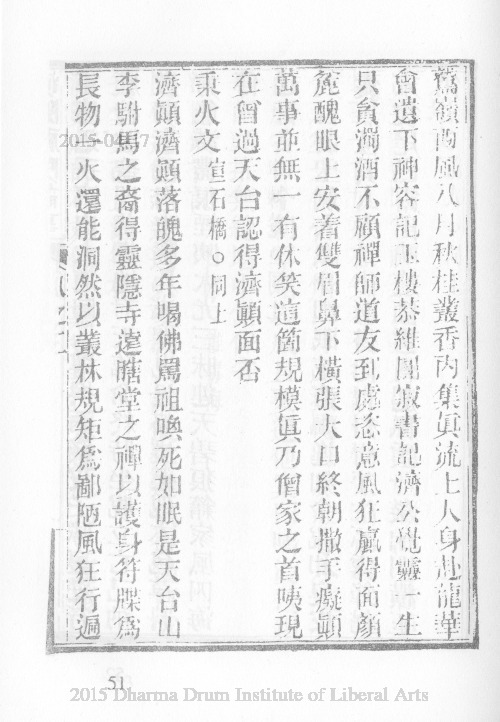 鷲嶺西風八月秋桂叢香內集眞流上人身赴龍華
會遺下神容記玉樓恭維圓寂書記濟公覺靈一生
只貪濁酒不顧禪師道友到處恣意風狂贏得面顏
醜眼上安着雙眉鼻下橫張大口終朝撒手癡顚
萬事並無一有休笑這箇規模眞乃僧家之首咦現
在曾過天台認得濟顚面否
秉火文 宣石橋○同上
濟顚濟顚落魄多年喝佛罵祖喚死如眠是天台山
李駙馬之裔得靈隱寺遠瞎堂之禪以護身符牒爲
長物一火還能洞然以叢林規矩爲鄙陋風狂行遍
51
2015-04-17
2015 Dharma Drum Institute of Liberal Arts